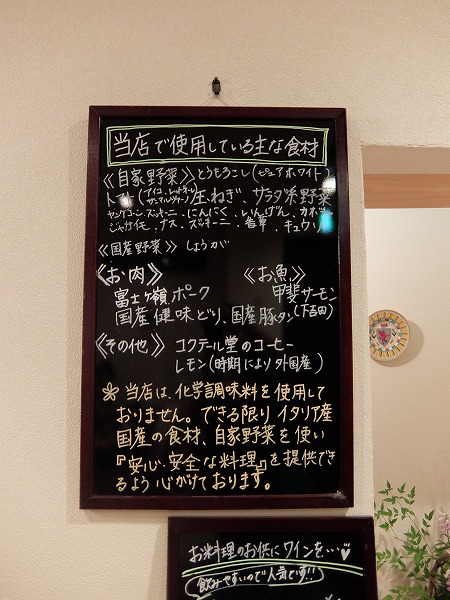 当店で使用している主な食材
《自家野菜》とうもろこし(ピュアホワイト)
トマト(アイコ、レッドオーレ サンマルツァーノ)玉ねぎ、サラダ系野菜
ヤングコーン、ズッキーニ、にんにく、いんげん、カボチャ
ジャガイモ、ナス、ズッキーニ、香草、キュウリ
《国産野菜》しょうが
《お肉》
富士ヶ嶺ポーク
国産健味どり、国産豚タン
《お魚》
甲斐サーモン
(下吉田)
《その他》 コクテール堂のコーヒー
レモン(時期により外国産)
※当店は、化学調味料を使用して
おりません。できる限りイタリア産
国産の食材、自家野菜を使い
『安心・安全な料理』を提供でき
るよう心がけております。
お料理のお供にワインを…
飲みやすいので人気です!!